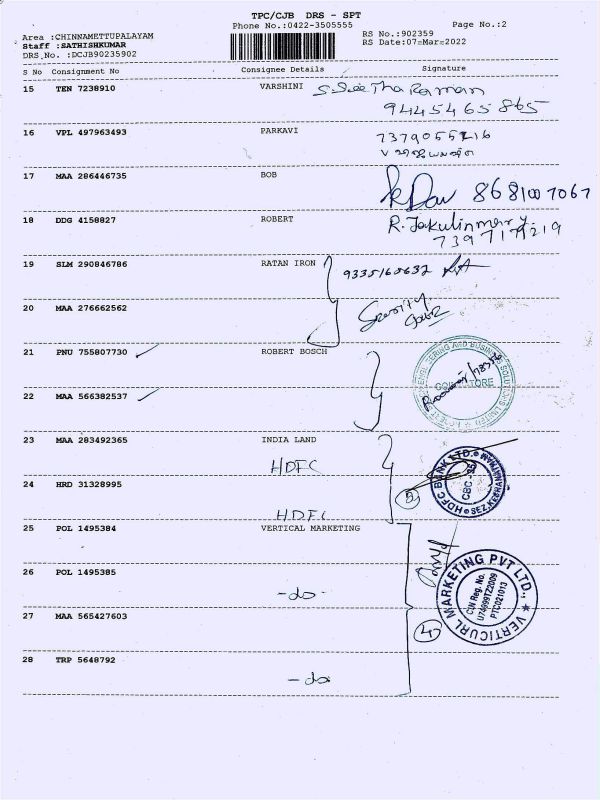 TPC/CJB DRS - SPT
Phone No.:0422-3505555
Page No.:2
Area :CHINNAMETTUPALAYAM
Staff :SATHISHKUMAR
DRS No. :DCJB90235902
RS No.:902359
RS Date:07=Mar=2022
S No Consignment No Consignee Details Signature
15 TEN 7238910 VARSHINI S.SeeTha Raman
9445465865
16 VPL 497963493 PARKAVI 7379055216
17 MAA 286446735 BOB 8681007067
18 DDG 4158827 ROBERT R. Jakulinmary
7397171219
19 SLM 290846786 RATAN IRON 9335165632
20 MAA 276662562 Security
21 PNU 755807730 ROBERT BOSCH
22 MAA 566382537
23 MAA 283492365 INDIA LAND
HDFC
HDFC BANK LTD.
CBC - 25
24 HRD 31328995
HDFC
2
25 POL 1495384 VERTICAL MARKETING
26 POL 1495385
-do-
VERTICURL MARKETING PVT LTD.,
CIN Reg. No.
U74999TZ2009
PTC021013
27 MAA 565427603
4
28 TRP 5648792
- do